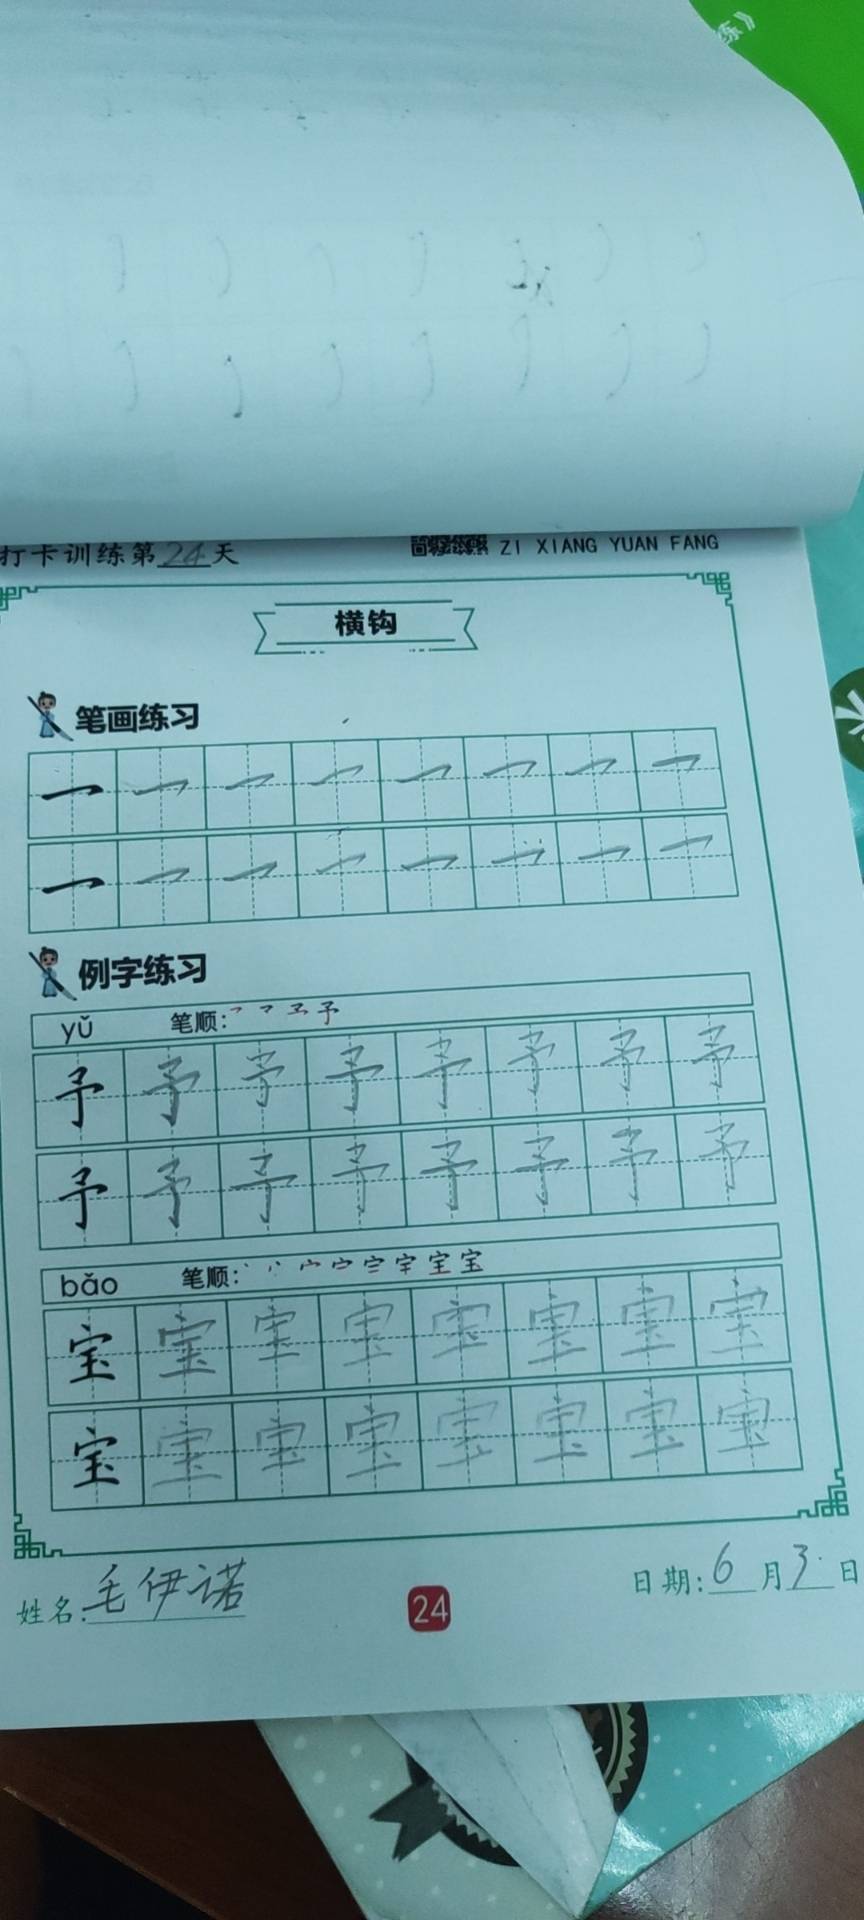 练》
打卡训练第24天
ZI XIANG YUAN FANG
横钩
笔画练习
例字练习
yǔ 笔顺:
予 予 予 予 予 予 予 予
予 予 予 予 予 予 予 予
bǎo 笔顺:
宝 宝 宝 宝 宝 宝 宝 宝
宝 宝 宝 宝 宝 宝 宝 宝
姓名:毛伊诺
24
日期:6月3日